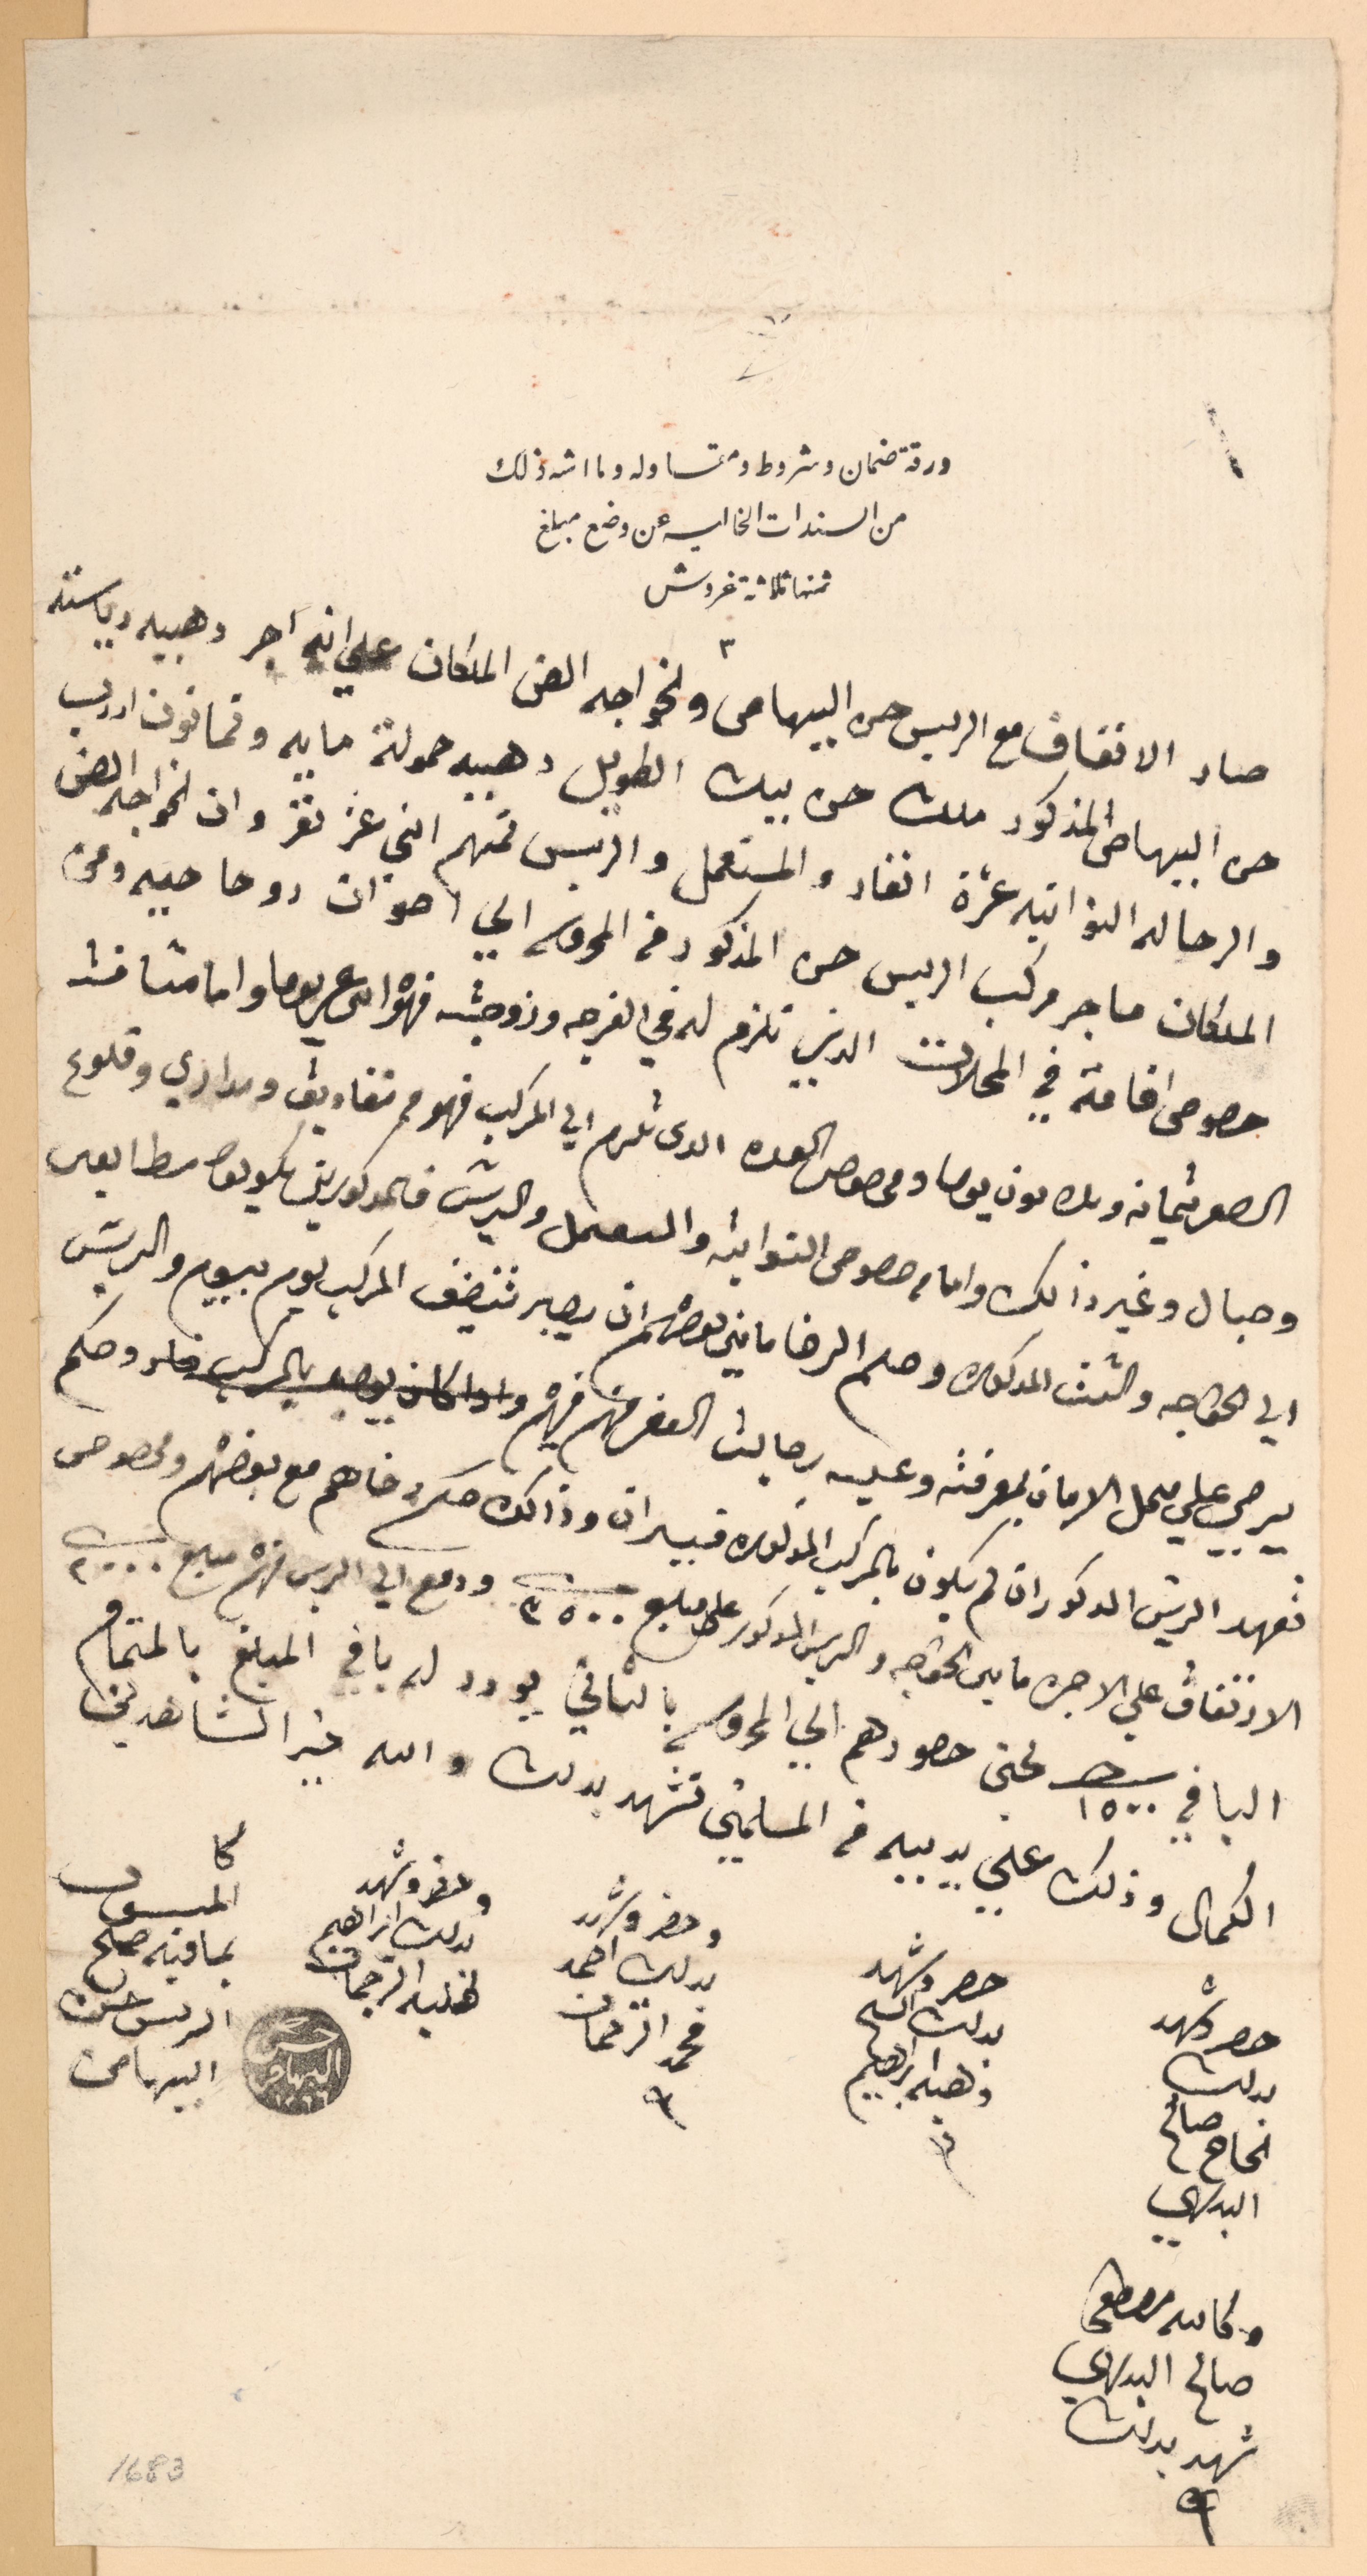 ورقة ضمان وشروط ومقاوله وما اشبه ذلك
من السندات الخاليه عن وضع مبلغ
ثمنها ثلاثة غروش
٣
صار الاتفاق مع الريس حسن البيهامى ولخواجه الفن الملكان علي انه آجر دهبيه رياسته
حسن البيهامى المذكور ملك حسن بيك الطويل دهبيه حمولة مايه وثمانون اردب
والرجاله النواتيه عشرة انفار والمستعمل والريس ثمنهم اثني عشر نفر وان لخواجه الفن
الملكان ماجر مركب الريس حسن المذكور من المحروسه الي اصوان روحا جيه ومن
خصوص اقامة في المحلات الذين تلزم له في الفرجه وزوجته فهوا يوما واما مسافة
السفر ثمانه وثلاثون يوما ومن خصوص العده الذى تلزم الي المركب فهو من مقاديف ومداري وقلوع
وحبال وغير ذالك واما من خصوص النواتيه والمستعمل والريس فالمذكورين يكونوا مطايعين
الي الخواجه والست المذكوره وصار الرضا مابين بعضهم ان يصير تنضيف المركب يوم بيوم والريس
يرسي علي محل الامان بمعرفته وعليه
تعهد الريس المذكور ان لم يكون بالمركب المذكوره فيران وذالك حكم رضاهم مع بعضهم ومن خصوص
الاتفاق علي الاجره مابين الخواجه والريس المذكور على مبلغ ٣٥٠٠ ودفع الي الريس منهم مبلغ ٢٠٠٠
الباقي ١٥٠٠ لحين حضورهم الي المحروسه بالتاني يورد له باقي المبلغ بالتمام
الكمال وذلك علي يد بينه من المسلمين تشهد بذلك والله خير الشاهدين
حضر وشهد
بذلك
الحاج صالح
البديوي
حضر وشهد
بذلك
وهبه ابراهيم
وحضر وشهد
بذلك احمد
محمد الترجمان
وحضر وشهد
بذلك ابراهيم
الترجمان
كا
المنسوب
بما فيه صحيح
الريس حسن
البيهامى
حسن
البيهامى
وكاتبه مصطفى
صالح البديوي
شهد بذلك
1683